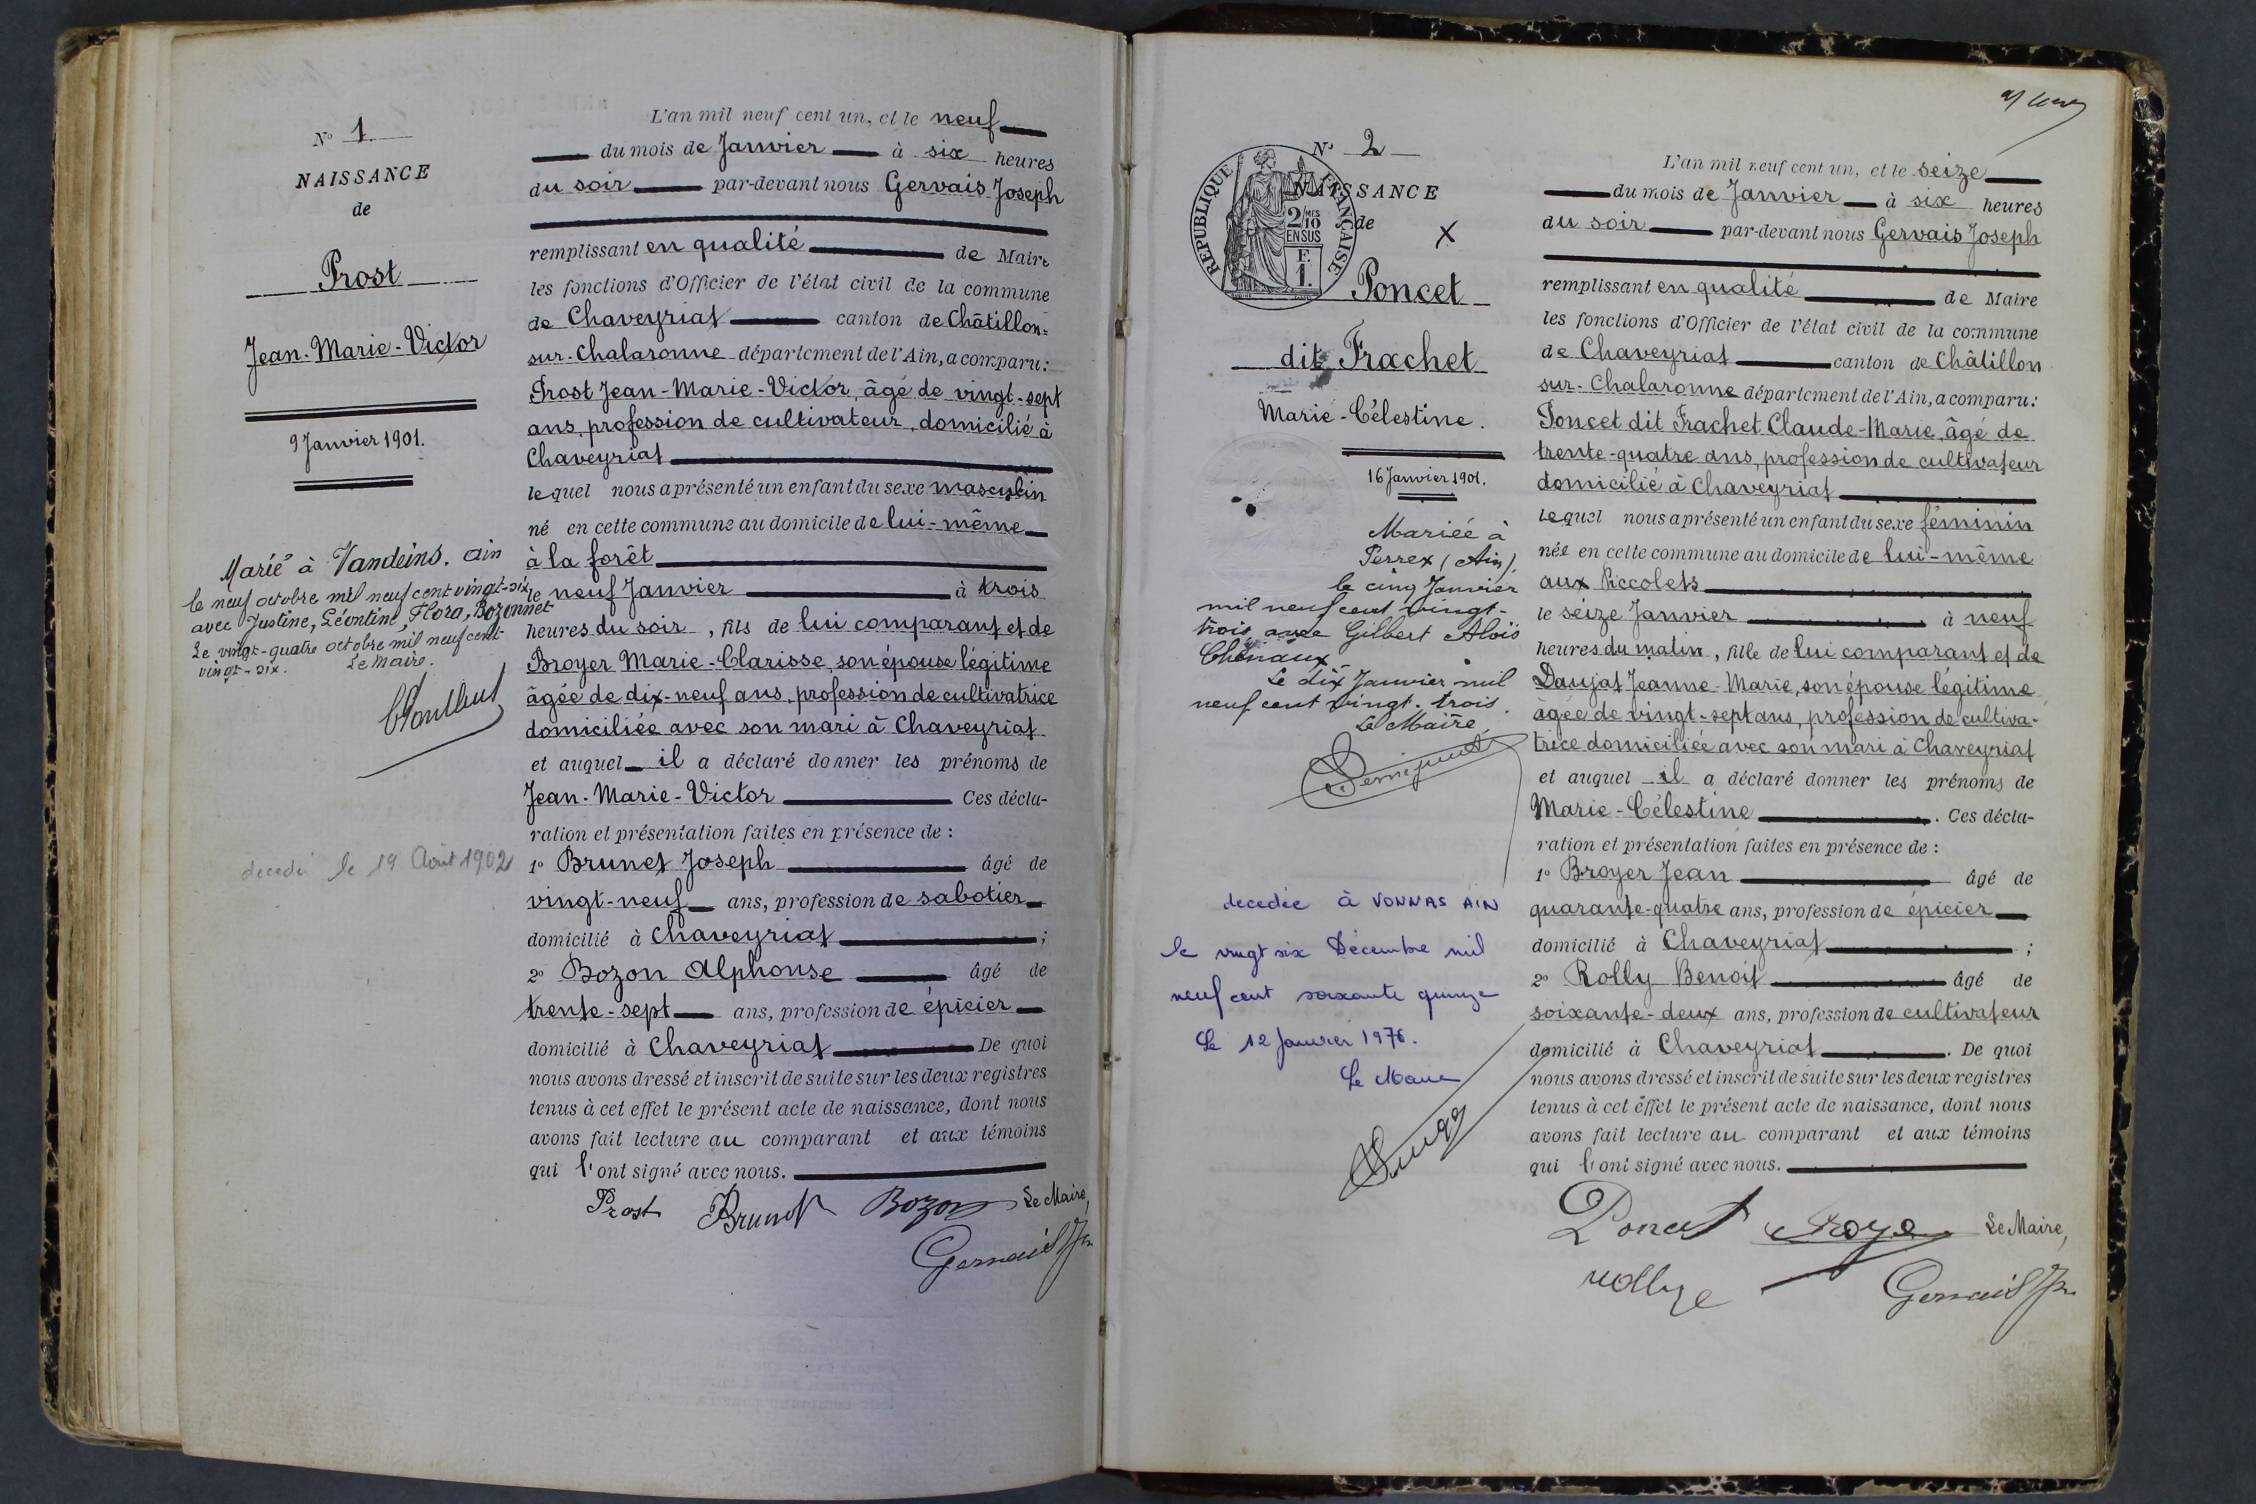 Nº 1
NAISSANCE
de
Prost
Jean-Marie-Victor
9 Janvier 1901.
Marié à Vandeins. Ain
le neuf octobre mil neuf cent vingt-six
avec Justine, Léontine, Flora, Bozonnet
Le vingt-quatre octobre mil neuf cent
vingt-six. Le Maire.
decedé le 19 Août 1902
L'an mil neuf cent un, et le neuf
du mois de Janvier à six heures
du soir par-devant nous Gervais Joseph
remplissant en qualité de Maire
les fonctions d'Officier de l'état civil de la commune
de Chaveyriat canton de Châtillon-
sur-Chalaronne département de l'Ain, a comparu:
Prost Jean-Marie-Victor, âgé de vingt-sept
ans, profession de cultivateur, domicilié à
Chaveyriat
lequel nous a présenté un enfant du sexe masculin
né en cette commune au domicile de lui-même
à la forêt
le neuf Janvier à trois
heures du soir, fils de lui comparant et de
Broyer Marie-Clarisse, son épouse légitime
âgée de dix-neuf ans, profession de cultivatrice
domiciliée avec son mari à Chaveyriat.
et auquel il a déclaré donner les prénoms de
Jean-Marie-Victor Ces décla-
ration et présentation faites en présence de :
1º Brunet Joseph âgé de
vingt-neuf ans, profession de sabotier
domicilié à Chaveyriat ;
2º Bozon Alphonse âgé de
trente-sept ans, profession de épicier
domicilié à Chaveyriat De quoi
nous avons dressé et inscrit de suite sur les deux registres
tenus à cet effet le présent acte de naissance, dont nous
avons fait lecture au comparant et aux témoins
qui l'ont signé avec nous.
Prost Brunet Bozon Le Maire,
Gervais Jh
Nº 2
NAISSANCE
de
X
RÉPUBLIQUE FRANÇAISE
2/10 MES
EN SUS
F.
1.
Poncet
dit Frachet
Marie-Célestine.
16 Janvier 1901.
Mariée à
Perrex (Ain),
le cinq Janvier
mil neuf cent vingt-
trois avec Gilbert Aloïs
Chênaux.
Le dix Janvier mil
neuf cent vingt-trois.
Le Maire
decedée à VONNAS AIN
le vingt six Décembre mil
neuf cent soixante quinze
Le 12 Janvier 1976.
Le Maire
L'an mil neuf cent un, et le seize
du mois de Janvier à six heures
du soir par-devant nous Gervais Joseph
remplissant en qualité de Maire
les fonctions d'Officier de l'état civil de la commune
de Chaveyriat canton de Châtillon
sur-Chalaronne département de l'Ain, a comparu:
Poncet dit Frachet Claude-Marie, âgé de
trente-quatre ans, profession de cultivateur
domicilié à Chaveyriat
lequel nous a présenté un enfant du sexe féminin
née en cette commune au domicile de lui-même
aux Piccolets
le seize Janvier à neuf
heures du matin, fille de lui comparant et de
Daujat Jeanne-Marie, son épouse légitime
âgée de vingt-sept ans, profession de cultiva-
trice domiciliée avec son mari à Chaveyriat
et auquel il a déclaré donner les prénoms de
Marie-Célestine. Ces décla-
ration et présentation faites en présence de :
1º Broyer Jean âgé de
quarante-quatre ans, profession de épicier
domicilié à Chaveyriat ;
2º Rolly Benoit âgé de
soixante-deux ans, profession de cultivateur
domicilié à Chaveyriat. De quoi
nous avons dressé et inscrit de suite sur les deux registres
tenus à cet effet le présent acte de naissance, dont nous
avons fait lecture au comparant et aux témoins
qui l'ont signé avec nous.
Poncet Broye Le Maire,
Gervais Jh